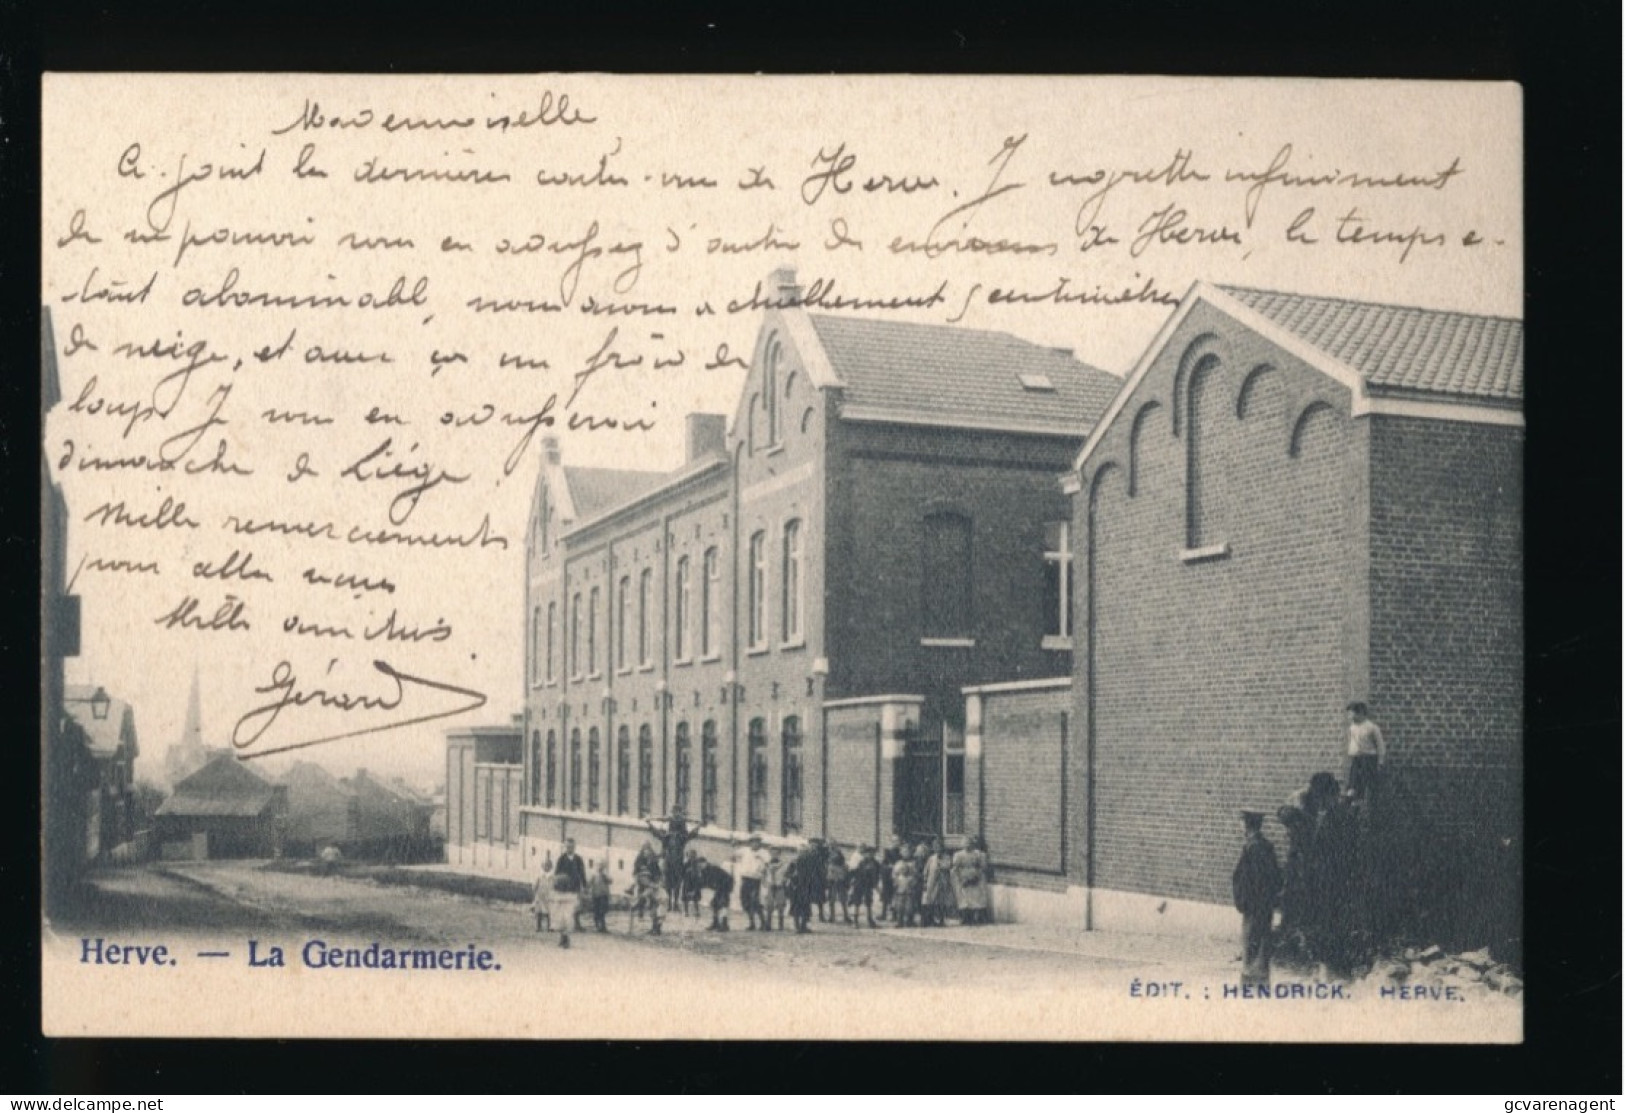 Mademoiselle,
Ci-joint les dernières cartes-vue de Herve. Je regrette infiniment
de ne pouvoir vous en adresser d'autre des environs de Herve, le temps é-
tant abominable, nous avons actuellement 5 centimètres
de neige, et avec ça un froid de
loups. Je vous en adresserai
dimanche de Liége.
Mille remerciements
pour celles reçues
Mille amitiés.
Gérard
Herve. — La Gendarmerie.
ÉDIT. : HENDRICK. HERVE.
delcampe.net
gcvarenagent